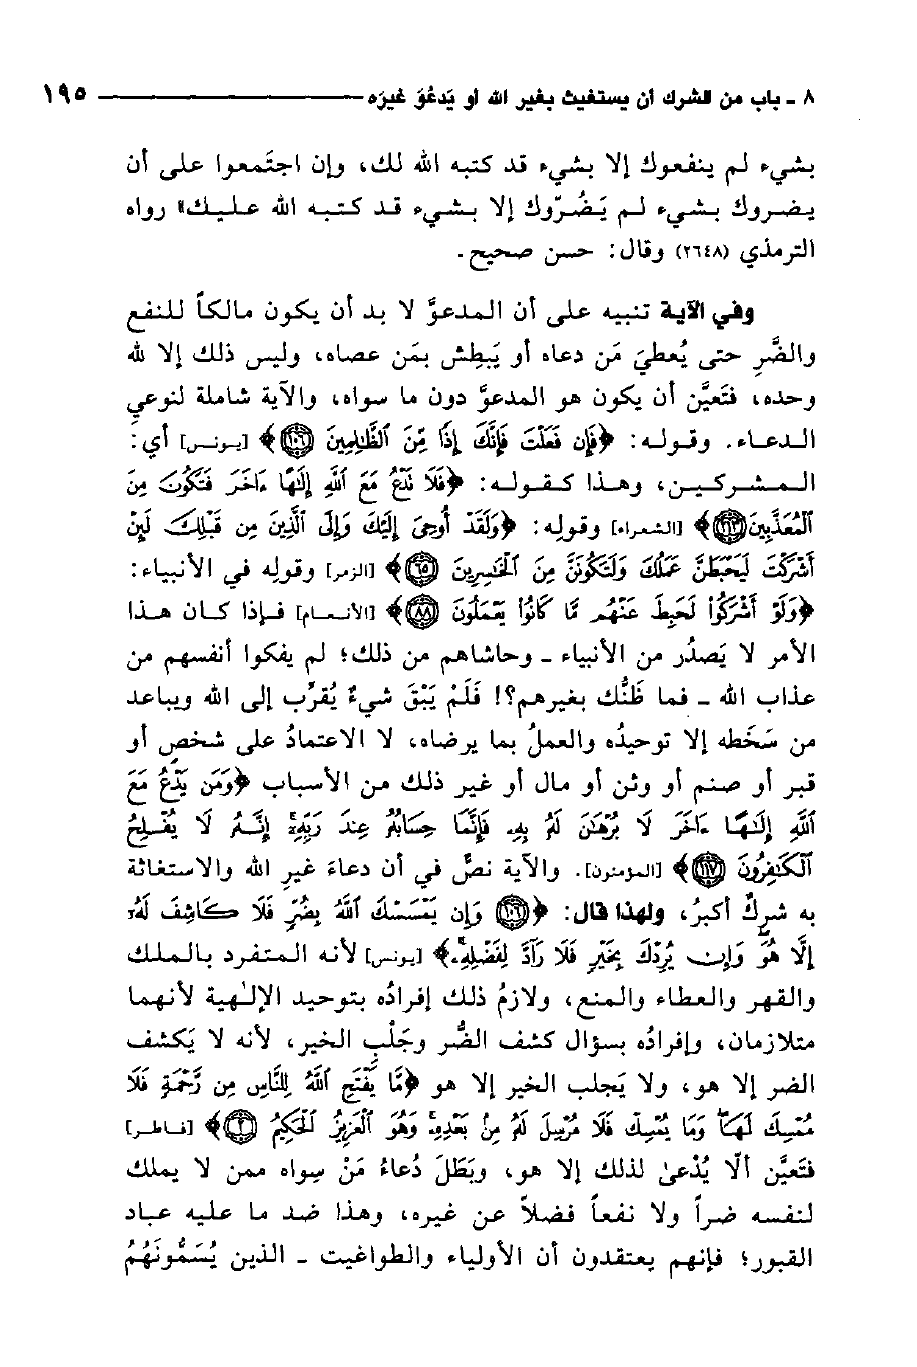 ٨ ـ باب من الشرك أن يستغيث بغير الله أو يَدعُوَ غيرَه ــــــــــــــــــــ ١٩٥
بشيء لم ينفعوك إلا بشيء قد كتبه الله لك، وإن اجتَمعوا على أن
يضروك بشيء لم يَضُرّوك إلا بشيء قد كتبه الله عليك» رواه
الترمذي (٢٦٤٨) وقال: حسن صحيح.
وفي الآية تنبيه على أن المدعوَّ لا بد أن يكون مالكاً للنفع
والضَّرِ حتى يُعطيَ مَن دعاه أو يَبطِش بمَن عصاه، وليس ذلك إلا لله
وحده، فتَعيَّن أن يكون هو المدعوَّ دون ما سواه، والآية شاملة لنوعي
الدعاء. وقوله: ﴿فَإِن فَعَلْتَ فَإِنَّكَ إِذًا مِّنَ ٱلظَّٰلِمِينَ ١٠٦﴾ [يونس] أي:
المشركين، وهذا كقوله: ﴿فَلَا نَدْعُ مَعَ ٱللَّهِ إِلَٰهًا ءَاخَرَ فَتَكُونَ مِنَ
ٱلْمُعَذَّبِينَ ٢١٣﴾ [الشعراء] وقوله: ﴿وَلَقَدْ أُوحِىَ إِلَيْكَ وَإِلَى ٱلَّذِينَ مِن قَبْلِكَ لَئِنْ
أَشْرَكْتَ لَيَحْبَطَنَّ عَمَلُكَ وَلَتَكُونَنَّ مِنَ ٱلْخَٰسِرِينَ ٦٥﴾ [الزمر] وقوله في الأنبياء:
﴿وَلَوْ أَشْرَكُوا۟ لَحَبِطَ عَنْهُم مَّا كَانُوا۟ يَعْمَلُونَ ٨٨﴾ [الأنعام] فإذا كان هذا
الأمر لا يَصدُر من الأنبياء ـ وحاشاهم من ذلك؛ لم يفكوا أنفسهم من
عذاب الله ـ فما ظَنُّك بغيرهم؟! فَلَمْ يَبْقَ شيءٌ يُقرِّب إلى الله ويباعد
من سَخَطه إلا توحيدُه والعملُ بما يرضاه، لا الاعتمادُ على شخصٍ أو
قبر أو صنم أو وثن أو مال أو غير ذلك من الأسباب ﴿وَمَن يَدْعُ مَعَ
ٱللَّهِ إِلَٰهًا ءَاخَرَ لَا بُرْهَٰنَ لَهُۥ بِهِۦ فَإِنَّمَا حِسَابُهُۥ عِندَ رَبِّهِۦٓ إِنَّهُۥ لَا يُفْلِحُ
ٱلْكَٰفِرُونَ ١١٧﴾ [المؤمنون]. والآية نصٌّ في أن دعاءَ غيرِ الله والاستغاثة
به شركٌ أكبرُ، ولهذا قال: ﴿١٠٦ وَإِن يَمْسَسْكَ ٱللَّهُ بِضُرٍّ فَلَا كَاشِفَ لَهُۥٓ
إِلَّا هُوَ وَإِن يُرِدْكَ بِخَيْرٍ فَلَا رَآدَّ لِفَضْلِهِۦ﴾ [يونس] لأنه المتفرد بالملك
والقهر والعطاء والمنع، ولازمُ ذلك إفرادُه بتوحيد الإلٰهية لأنهما
متلازمان، وإفرادُه بسؤال كشف الضُّر وجَلْبِ الخير، لأنه لا يَكشف
الضر إلا هو، ولا يَجلب الخير إلا هو ﴿مَّا يَفْتَحِ ٱللَّهُ لِلنَّاسِ مِن رَّحْمَةٍ فَلَا
مُمْسِكَ لَهَا وَمَا يُمْسِكْ فَلَا مُرْسِلَ لَهُۥ مِنۢ بَعْدِهِۦ وَهُوَ ٱلْعَزِيزُ ٱلْحَكِيمُ ٢﴾ [فاطر]
فتَعيَّن ألّا يُدْعىٰ لذلك إلا هو، وبَطَلَ دُعاءُ مَنْ سِواه ممن لا يملك
لنفسه ضراً ولا نفعاً فضلاً عن غيره، وهذا ضد ما عليه عباد
القبور؛ فإنهم يعتقدون أن الأولياء والطواغيت ـ الذين يُسَمُّونَهُمُ